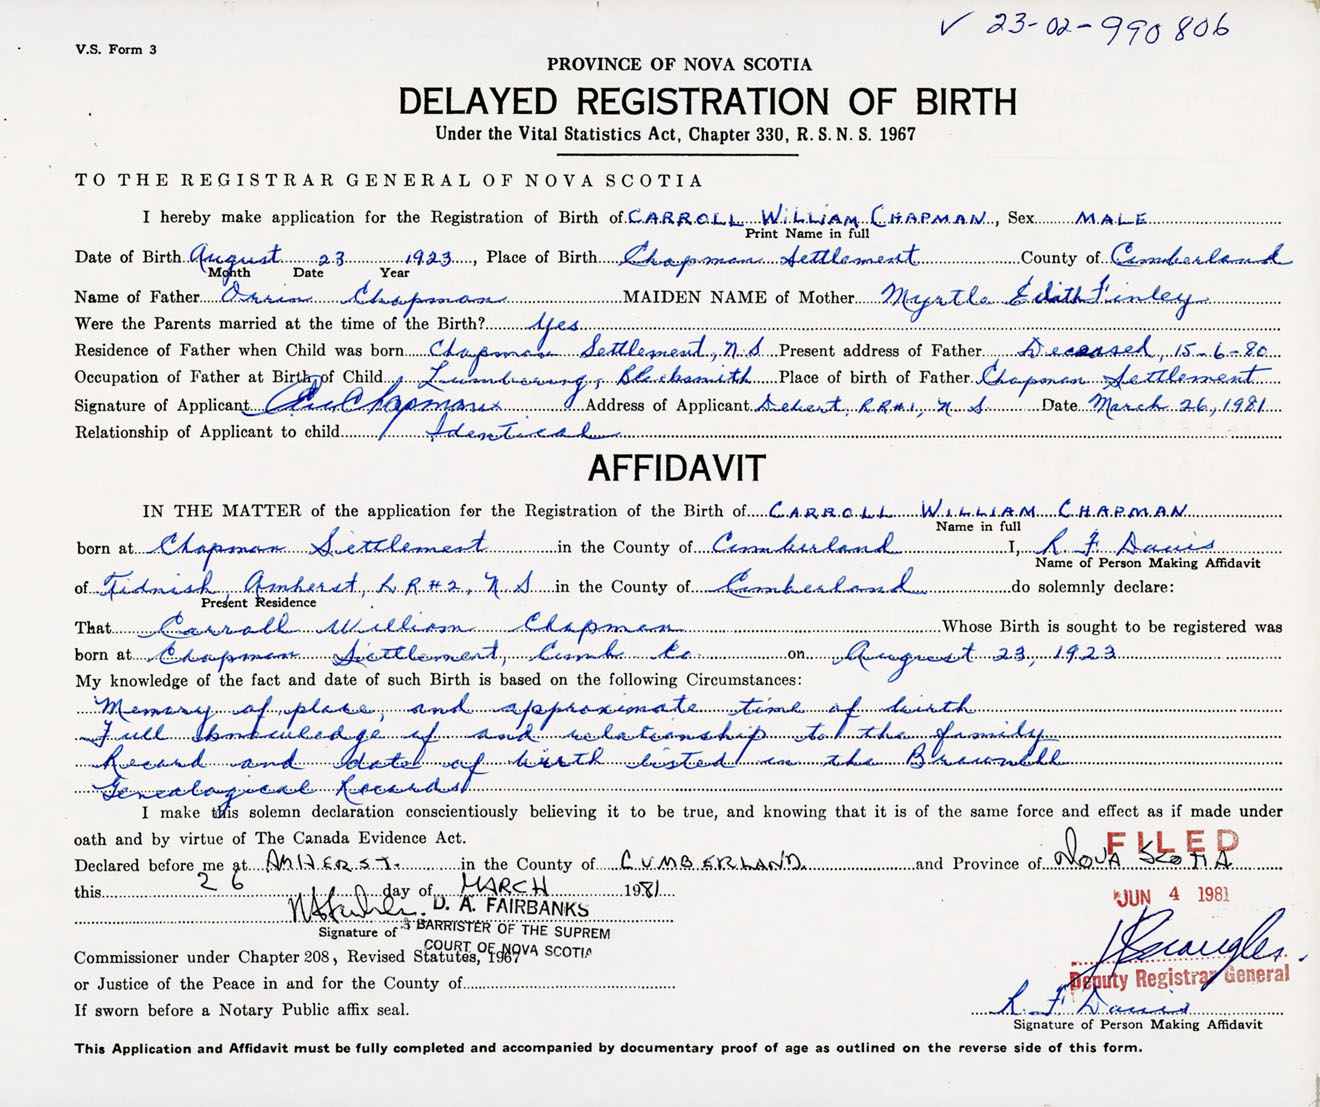 ✓ 23-02-990806
V.S. Form 3
PROVINCE OF NOVA SCOTIA
DELAYED REGISTRATION OF BIRTH
Under the Vital Statistics Act, Chapter 330, R. S. N. S. 1967
TO THE REGISTRAR GENERAL OF NOVA SCOTIA
I hereby make application for the Registration of Birth of CARROLL WILLIAM CHAPMAN, Sex MALE
Print Name in full
Date of Birth August 23 1923, Place of Birth Chapman Settlement County of Cumberland
Month Date Year
Name of Father Orrin Chapman MAIDEN NAME of Mother Myrtle Edith Finley
Were the Parents married at the time of the Birth? Yes
Residence of Father when Child was born Chapman Settlement, N.S Present address of Father Deceased, 15-6-80
Occupation of Father at Birth of Child Lumbering, Blacksmith Place of birth of Father Chapman Settlement
Signature of Applicant Chapman Address of Applicant Debert, RR#1, N S Date March 26, 1981
Relationship of Applicant to child Identical
AFFIDAVIT
IN THE MATTER of the application for the Registration of the Birth of CARROLL WILLIAM CHAPMAN
Name in full
born at Chapman Settlement in the County of Cumberland I, R F Davis
Name of Person Making Affidavit
of Tidnish, Amherst, R R#2, N S in the County of Cumberland do solemnly declare:
Present Residence
That Carroll William Chapman Whose Birth is sought to be registered was
born at Chapman Settlement, Cumb Co. on August 23, 1923
My knowledge of the fact and date of such Birth is based on the following Circumstances:
Memory of place, and approximate time of birth
Full knowledge of and relationship to the family
Record and date of birth listed in the Brownell
Genealogical Records
I make this solemn declaration conscientiously believing it to be true, and knowing that it is of the same force and effect as if made under
oath and by virtue of The Canada Evidence Act.
FILED
Declared before me at AMHERST. in the County of CUMBERLAND and Province of NOVA SCOTIA
this 26 day of MARCH 1981
JUN 4 1981
D. A. FAIRBANKS
Signature of A BARRISTER OF THE SUPREM
COURT OF NOVA SCOTIA
Commissioner under Chapter 208, Revised Statutes, 1967
Deputy Registrar General
or Justice of the Peace in and for the County of
R. F Davis
If sworn before a Notary Public affix seal.
Signature of Person Making Affidavit
This Application and Affidavit must be fully completed and accompanied by documentary proof of age as outlined on the reverse side of this form.